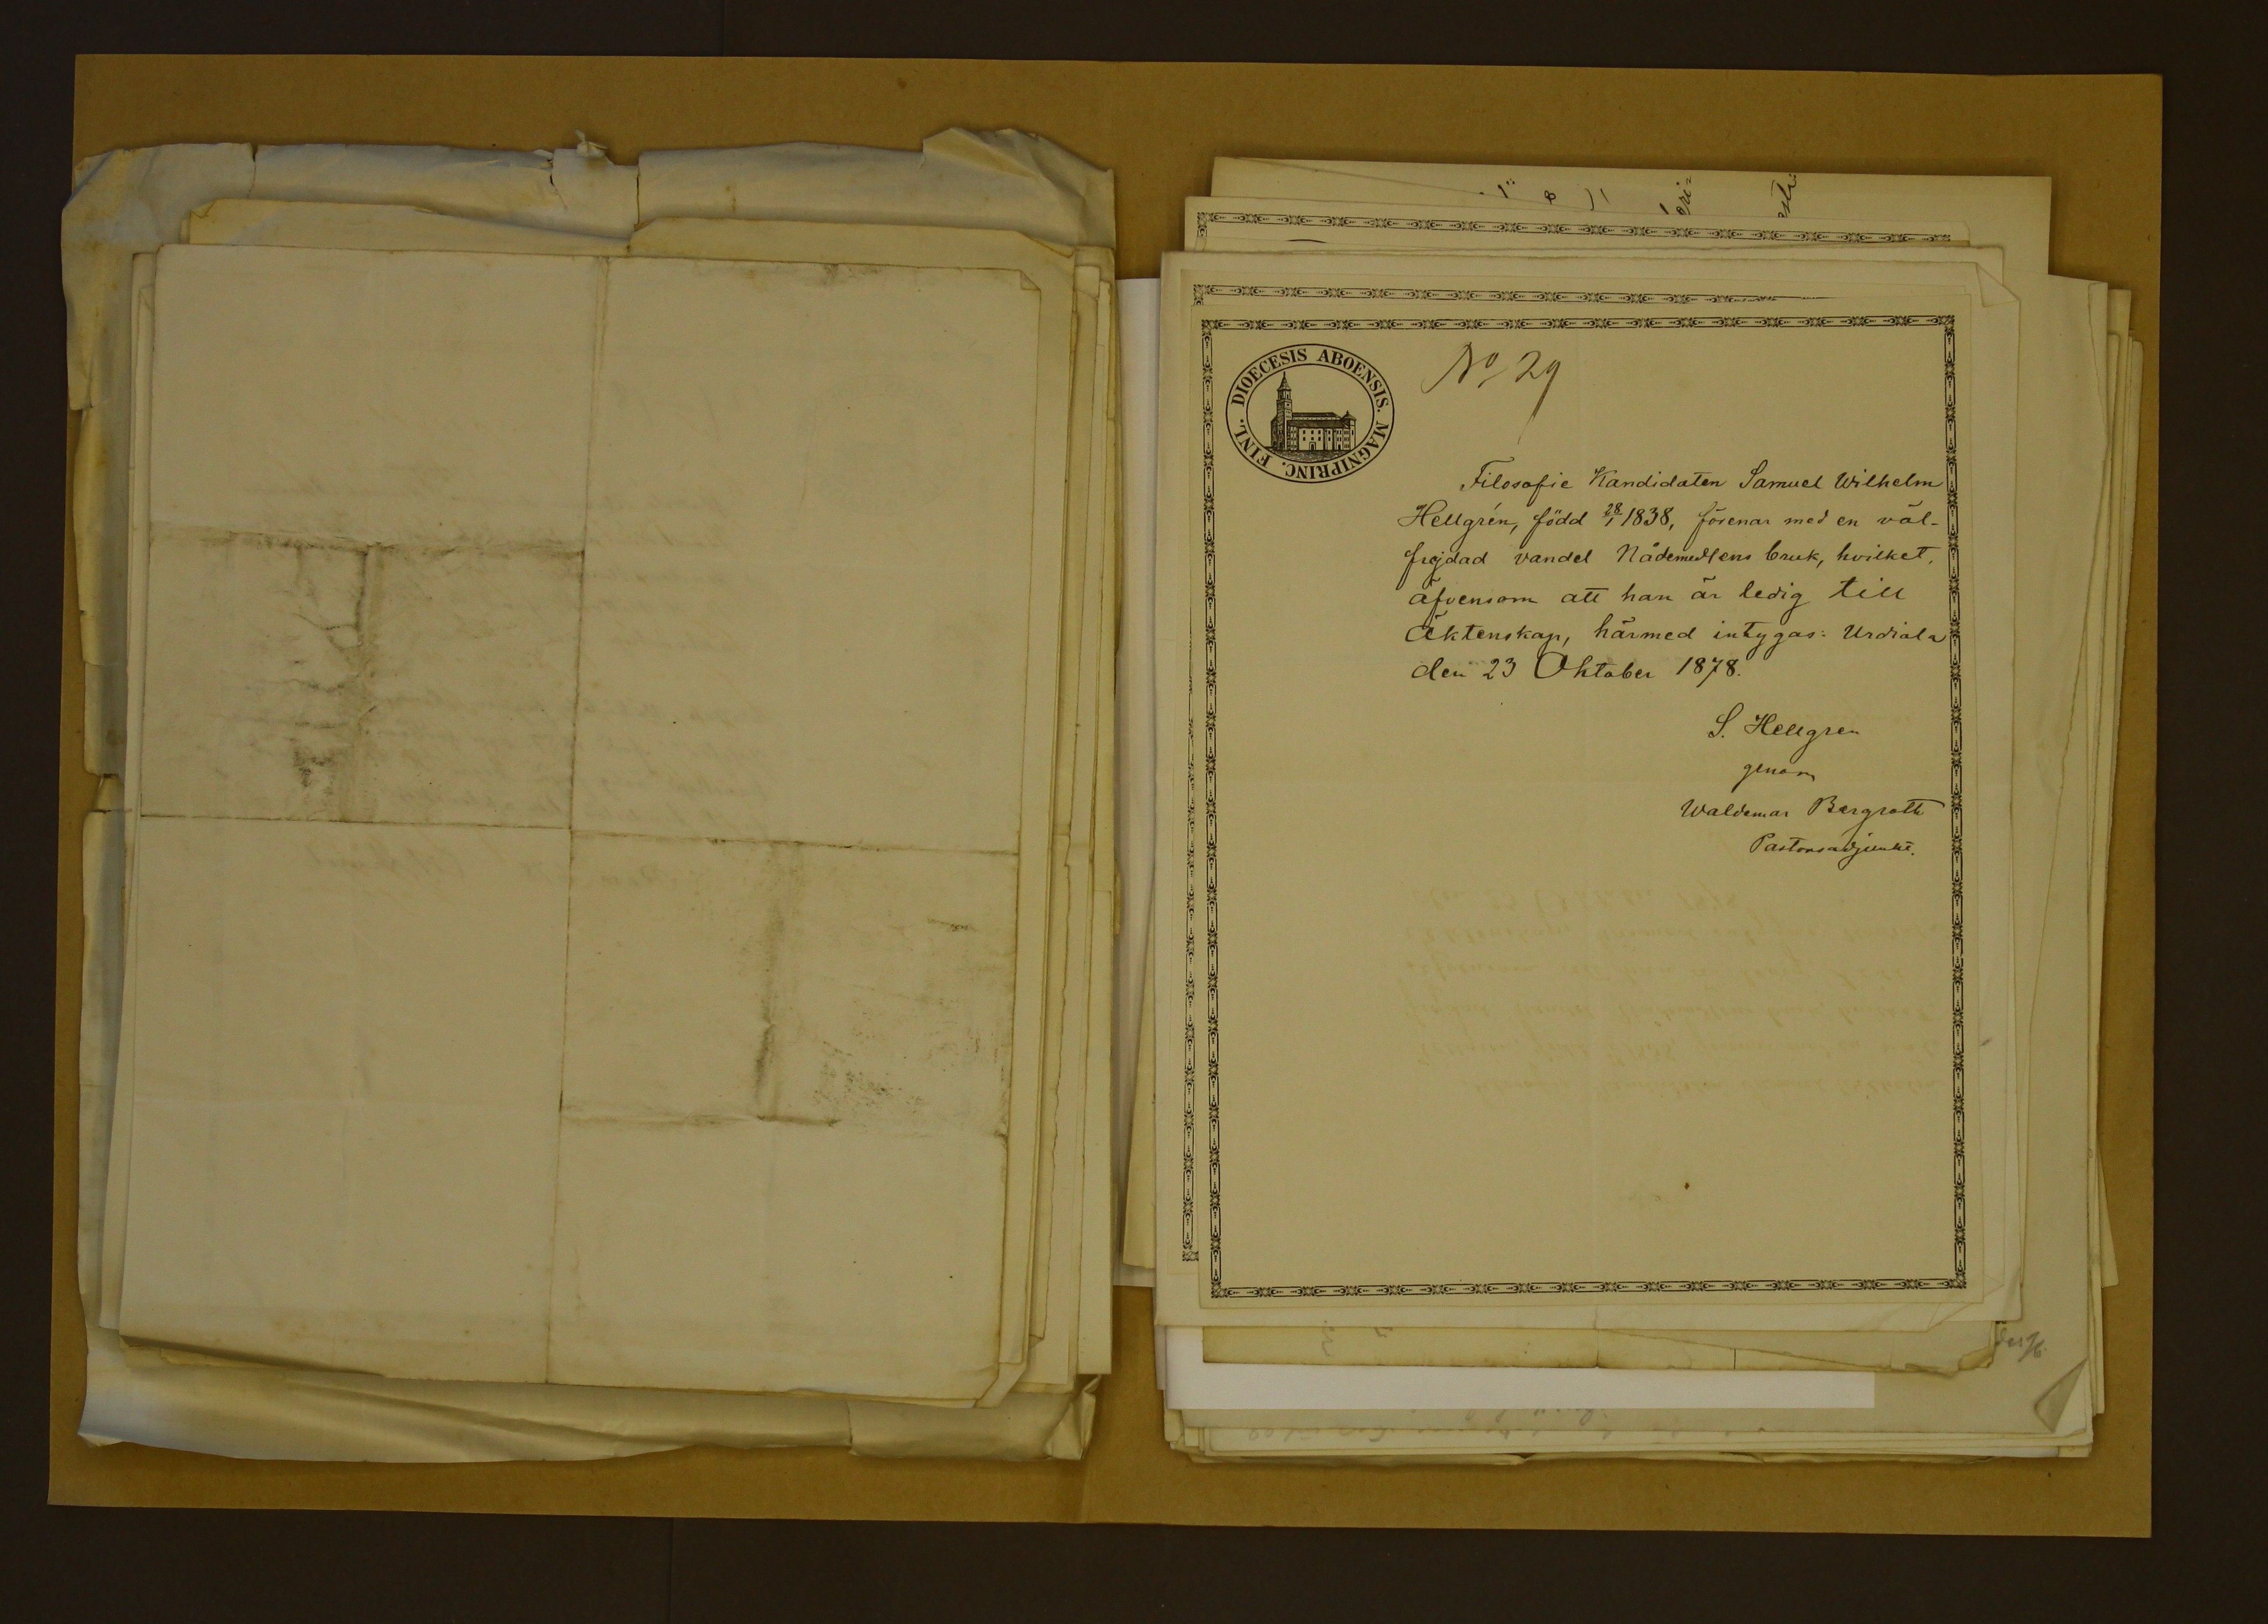 DIOECESIS ABOENSIS. MAGNIPRINC. FINL.
No 29
Filosofie Kandidaten Samuel Wilhelm
Hellgrén, född 28/1 1838, förenar med en väl-
frejdad vandel Nådemedlens bruk, hvilket,
äfvensom att han är ledig till
Äktenskap, härmed intygas: Urdiala
den 23 Oktober 1878.
S. Hellgren
genom
Waldemar Bergroth
Pastorsadjunkt.